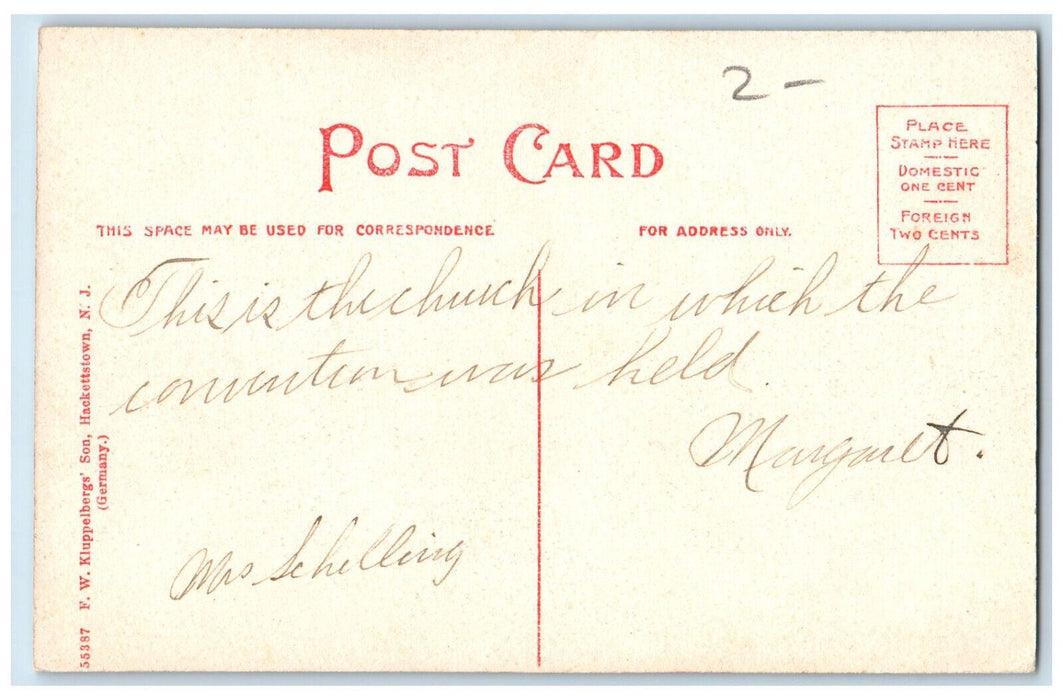 2 -
POST CARD
PLACE
STAMP HERE
DOMESTIC
ONE CENT
FOREIGN
TWO CENTS
THIS SPACE MAY BE USED FOR CORRESPONDENCE
FOR ADDRESS ONLY.
This is the church in which the
convention was held.
Margaret.
Mrs Schelling
55387 F. W. Kluppelbergs' Son, Hackettstown, N. J.
(Germany.)